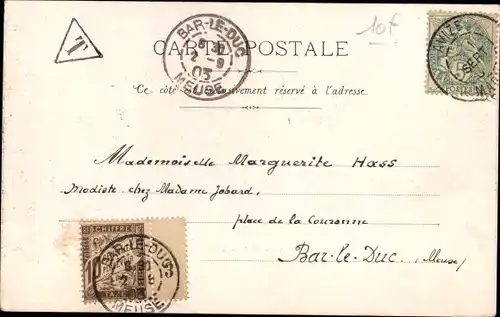 10F
T
BAR-LE-DUC
8 30
2 - 9
03
MEUSE
AVIZE
1
SEPT
CARTE POSTALE
Ce côté est exclusivement réservé à l'adresse.
Mademoiselle Marguerite Hass
Modiste chez Madame Jobard,
place de la Couronne
Bar-le-Duc. (Meuse)
CHIFFRE
10
TAXE
BAR-LE-DUC
8 30
2 - 9
03
MEUSE